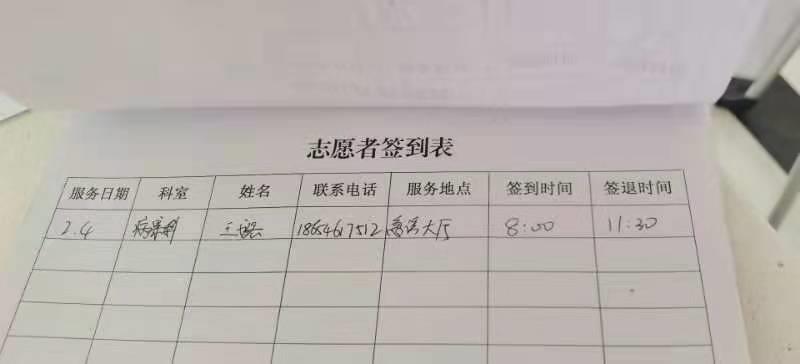 志愿者签到表
服务日期 科室 姓名 联系电话 服务地点 签到时间 签退时间
2.4 病案科 18654617512 大厅 8:00 11:30